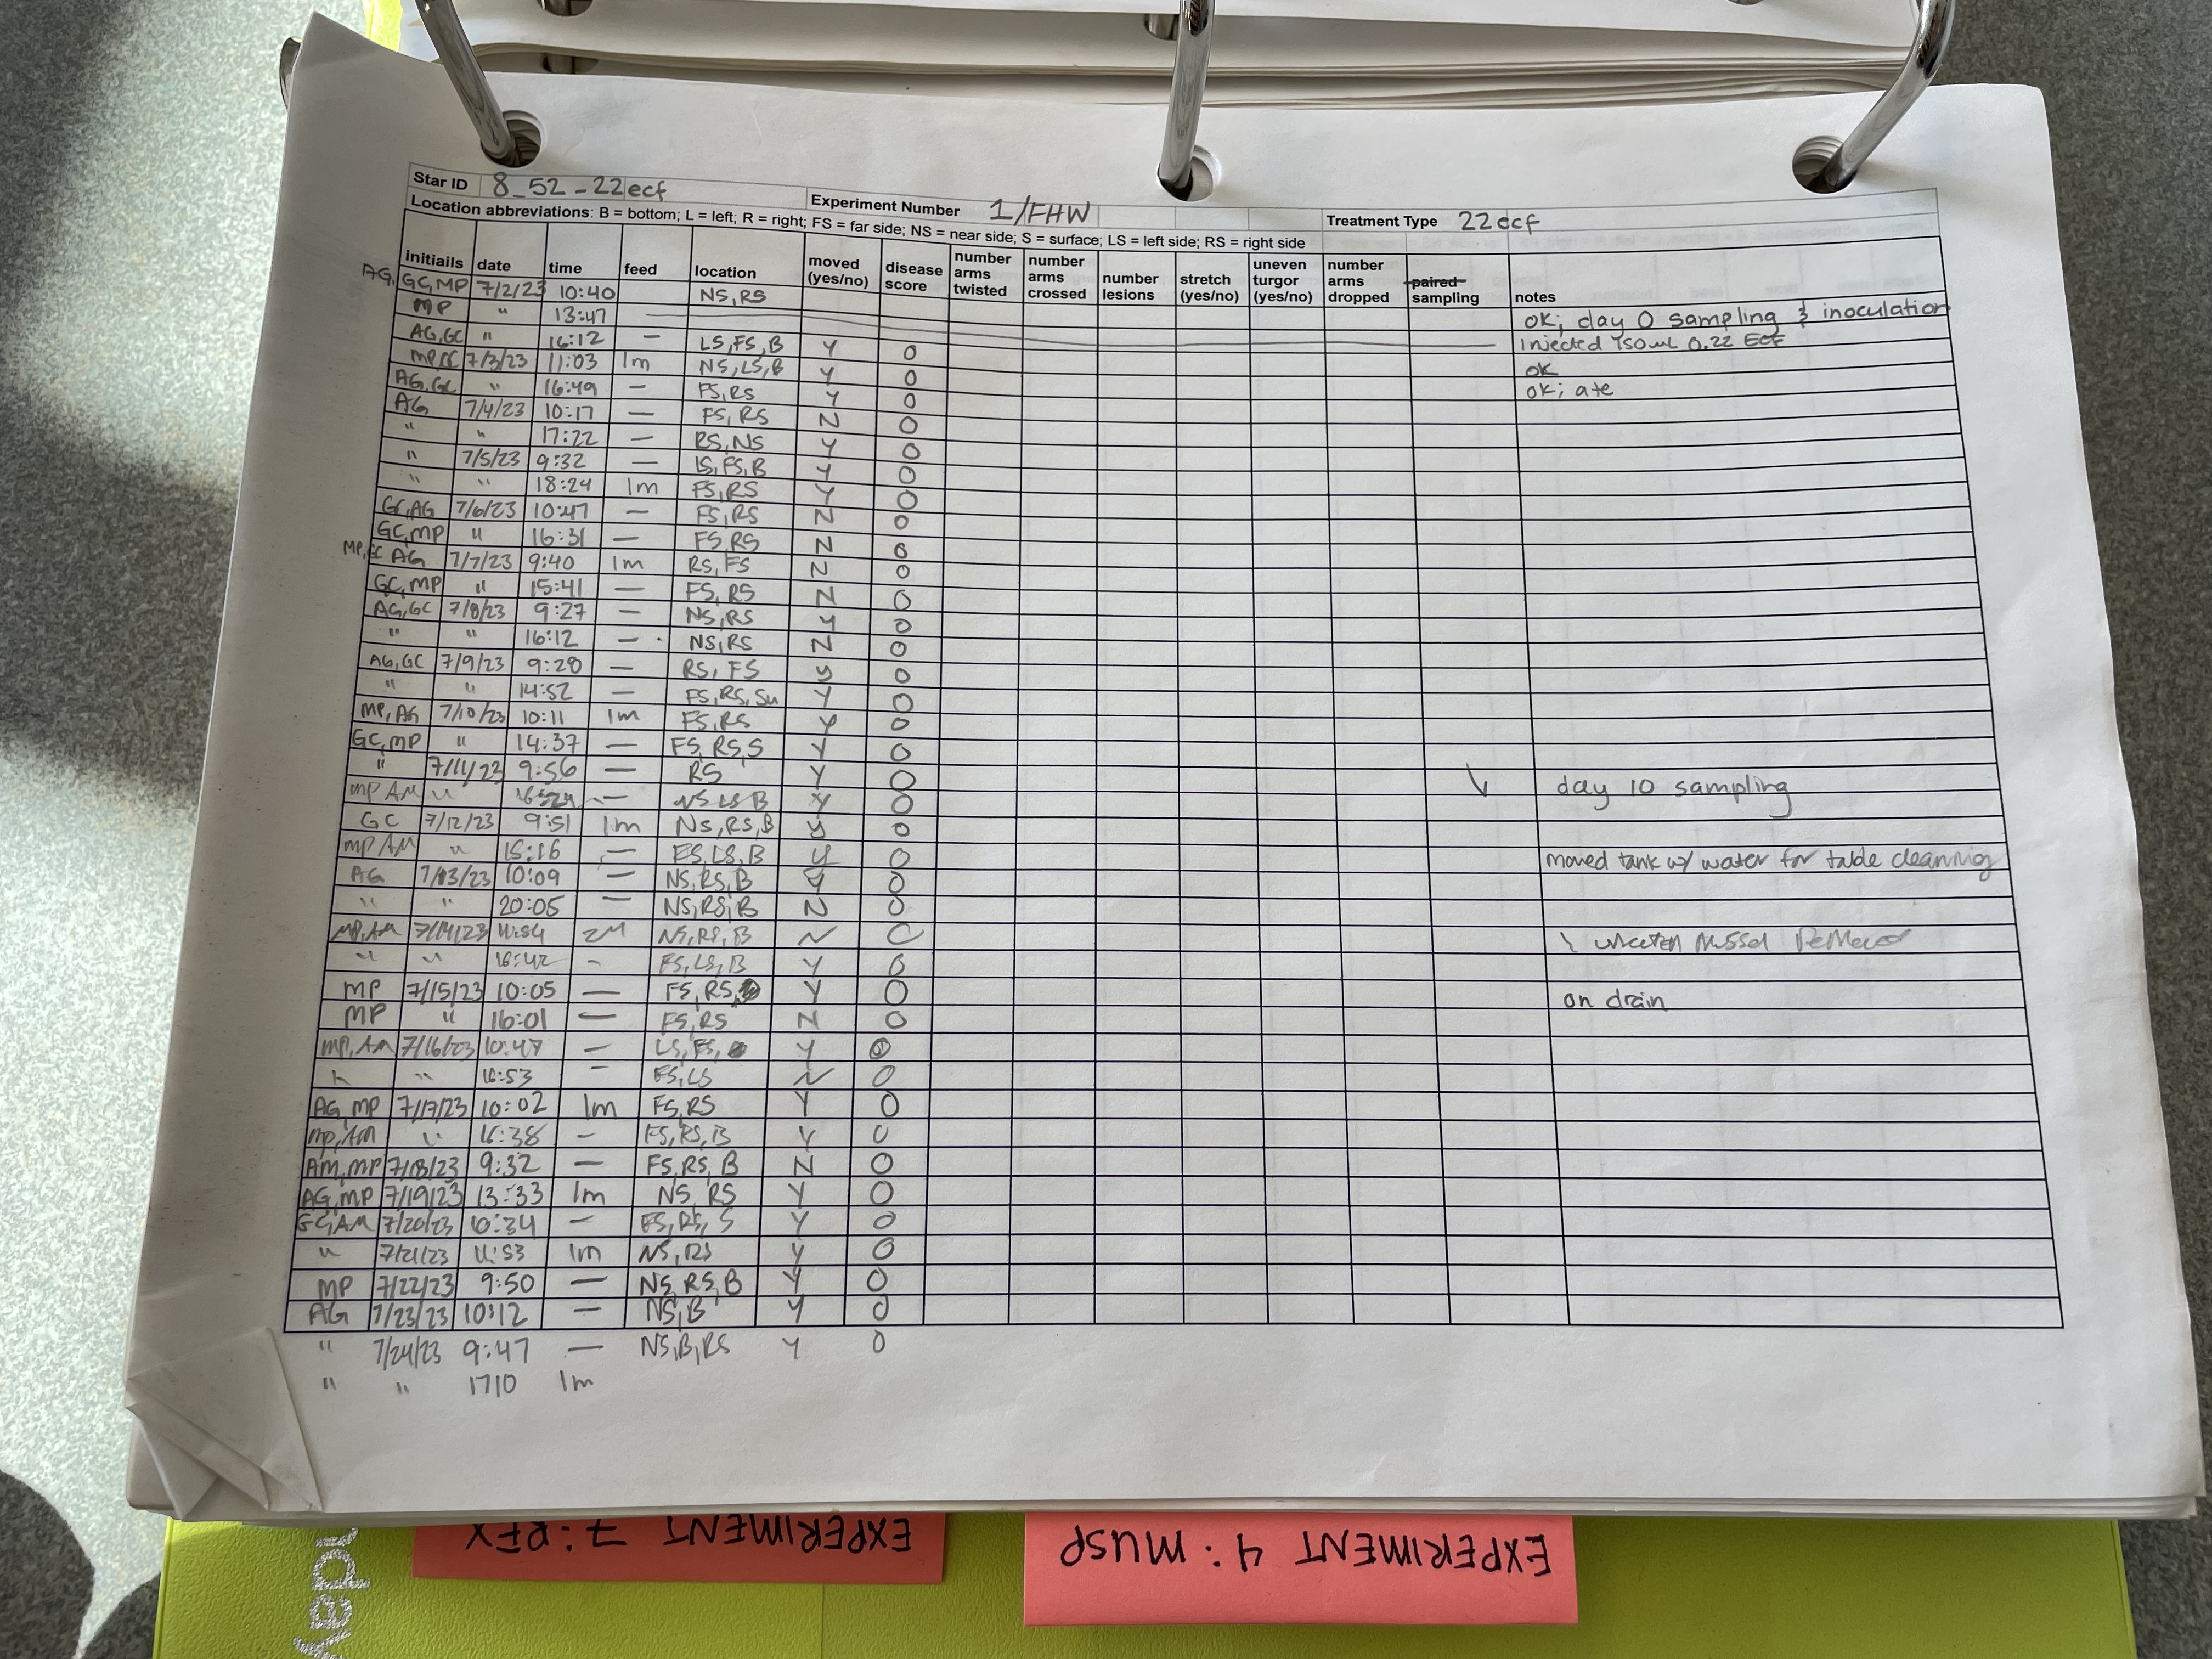 Star ID 8_52-22ecf Experiment Number 1/FHW Treatment Type 22ecf
Location abbreviations: B = bottom; L = left; R = right; FS = far side; NS = near side; S = surface; LS = left side; RS = right side
initiails date time feed location moved (yes/no) disease score number arms twisted number arms crossed number lesions stretch (yes/no) uneven turgor (yes/no) number arms dropped paired sampling notes
AG, GC, MP 7/2/23 10:40 NS, RS ok; day 0 sampling & inoculation
MP " 13:47 — injected 450uL 0.22 ECF
AG, GC " 16:12 — LS, FS, B Y 0 ok
MP, GC 7/3/23 11:03 1m NS, LS, B Y 0 ok; ate
AG, GC " 16:49 — FS, RS Y 0
AG 7/4/23 10:17 — FS, RS N 0
" " 17:22 — RS, NS Y 0
" 7/5/23 9:32 — LS, FS, B Y 0
" " 18:24 1m FS, RS Y 0
GC, AG 7/6/23 10:47 — FS, RS N 0
GC, MP " 16:31 — FS, RS N 0
MP, GC AG 7/7/23 9:40 1m RS, FS N 0
GC, MP " 15:41 — FS, RS N 0
AG, GC 7/8/23 9:27 — NS, RS Y 0
" " 16:12 — NS, RS N 0
AG, GC 7/9/23 9:28 — RS, FS Y 0
" " 14:52 — FS, RS, Su Y 0
MP, AG 7/10/23 10:11 1m FS, RS Y 0
GC, MP " 14:37 — FS, RS, S Y 0
" 7/11/23 9:56 — RS Y 0 day 10 sampling
MP AM " 16:24 — NS LS B Y 0
GC 7/12/23 9:51 1m NS, RS, B Y 0
MP AM " 15:16 — FS, LS, B Y 0 moved tank w/ water for table cleanning
AG 7/13/23 10:09 — NS, RS, B Y 0
" " 20:05 — NS, RS, B N 0
MP, AM 7/14/23 11:54 2M NS, RS, B N 0 \ uneaten mussel removed
" " 16:42 - FS, LS, B Y 0
MP 7/15/23 10:05 — FS, RS, Y 0 on drain
MP " 16:01 — FS, RS N 0
MP, AM 7/16/23 10:47 — LS, FS, Y 0
" " 16:53 — FS, LS N 0
AG, MP 7/17/23 10:02 1m FS, RS Y 0
MP, AM " 16:38 — FS, RS, B Y 0
AM, MP 7/18/23 9:32 — FS, RS, B N 0
AG, MP 7/19/23 13:33 1m NS, RS Y 0
GC, AM 7/20/23 10:34 — FS, RS, S Y 0
" 7/21/23 11:53 1m NS, RS Y 0
MP 7/22/23 9:50 — NS, RS, B Y 0
AG 7/23/23 10:12 — NS, B Y 0
" 7/24/23 9:47 — NS, B, RS Y 0
" " 1710 1m
EXPERIMENT 7: PFX
EXPERIMENT 4: MUSP
nday